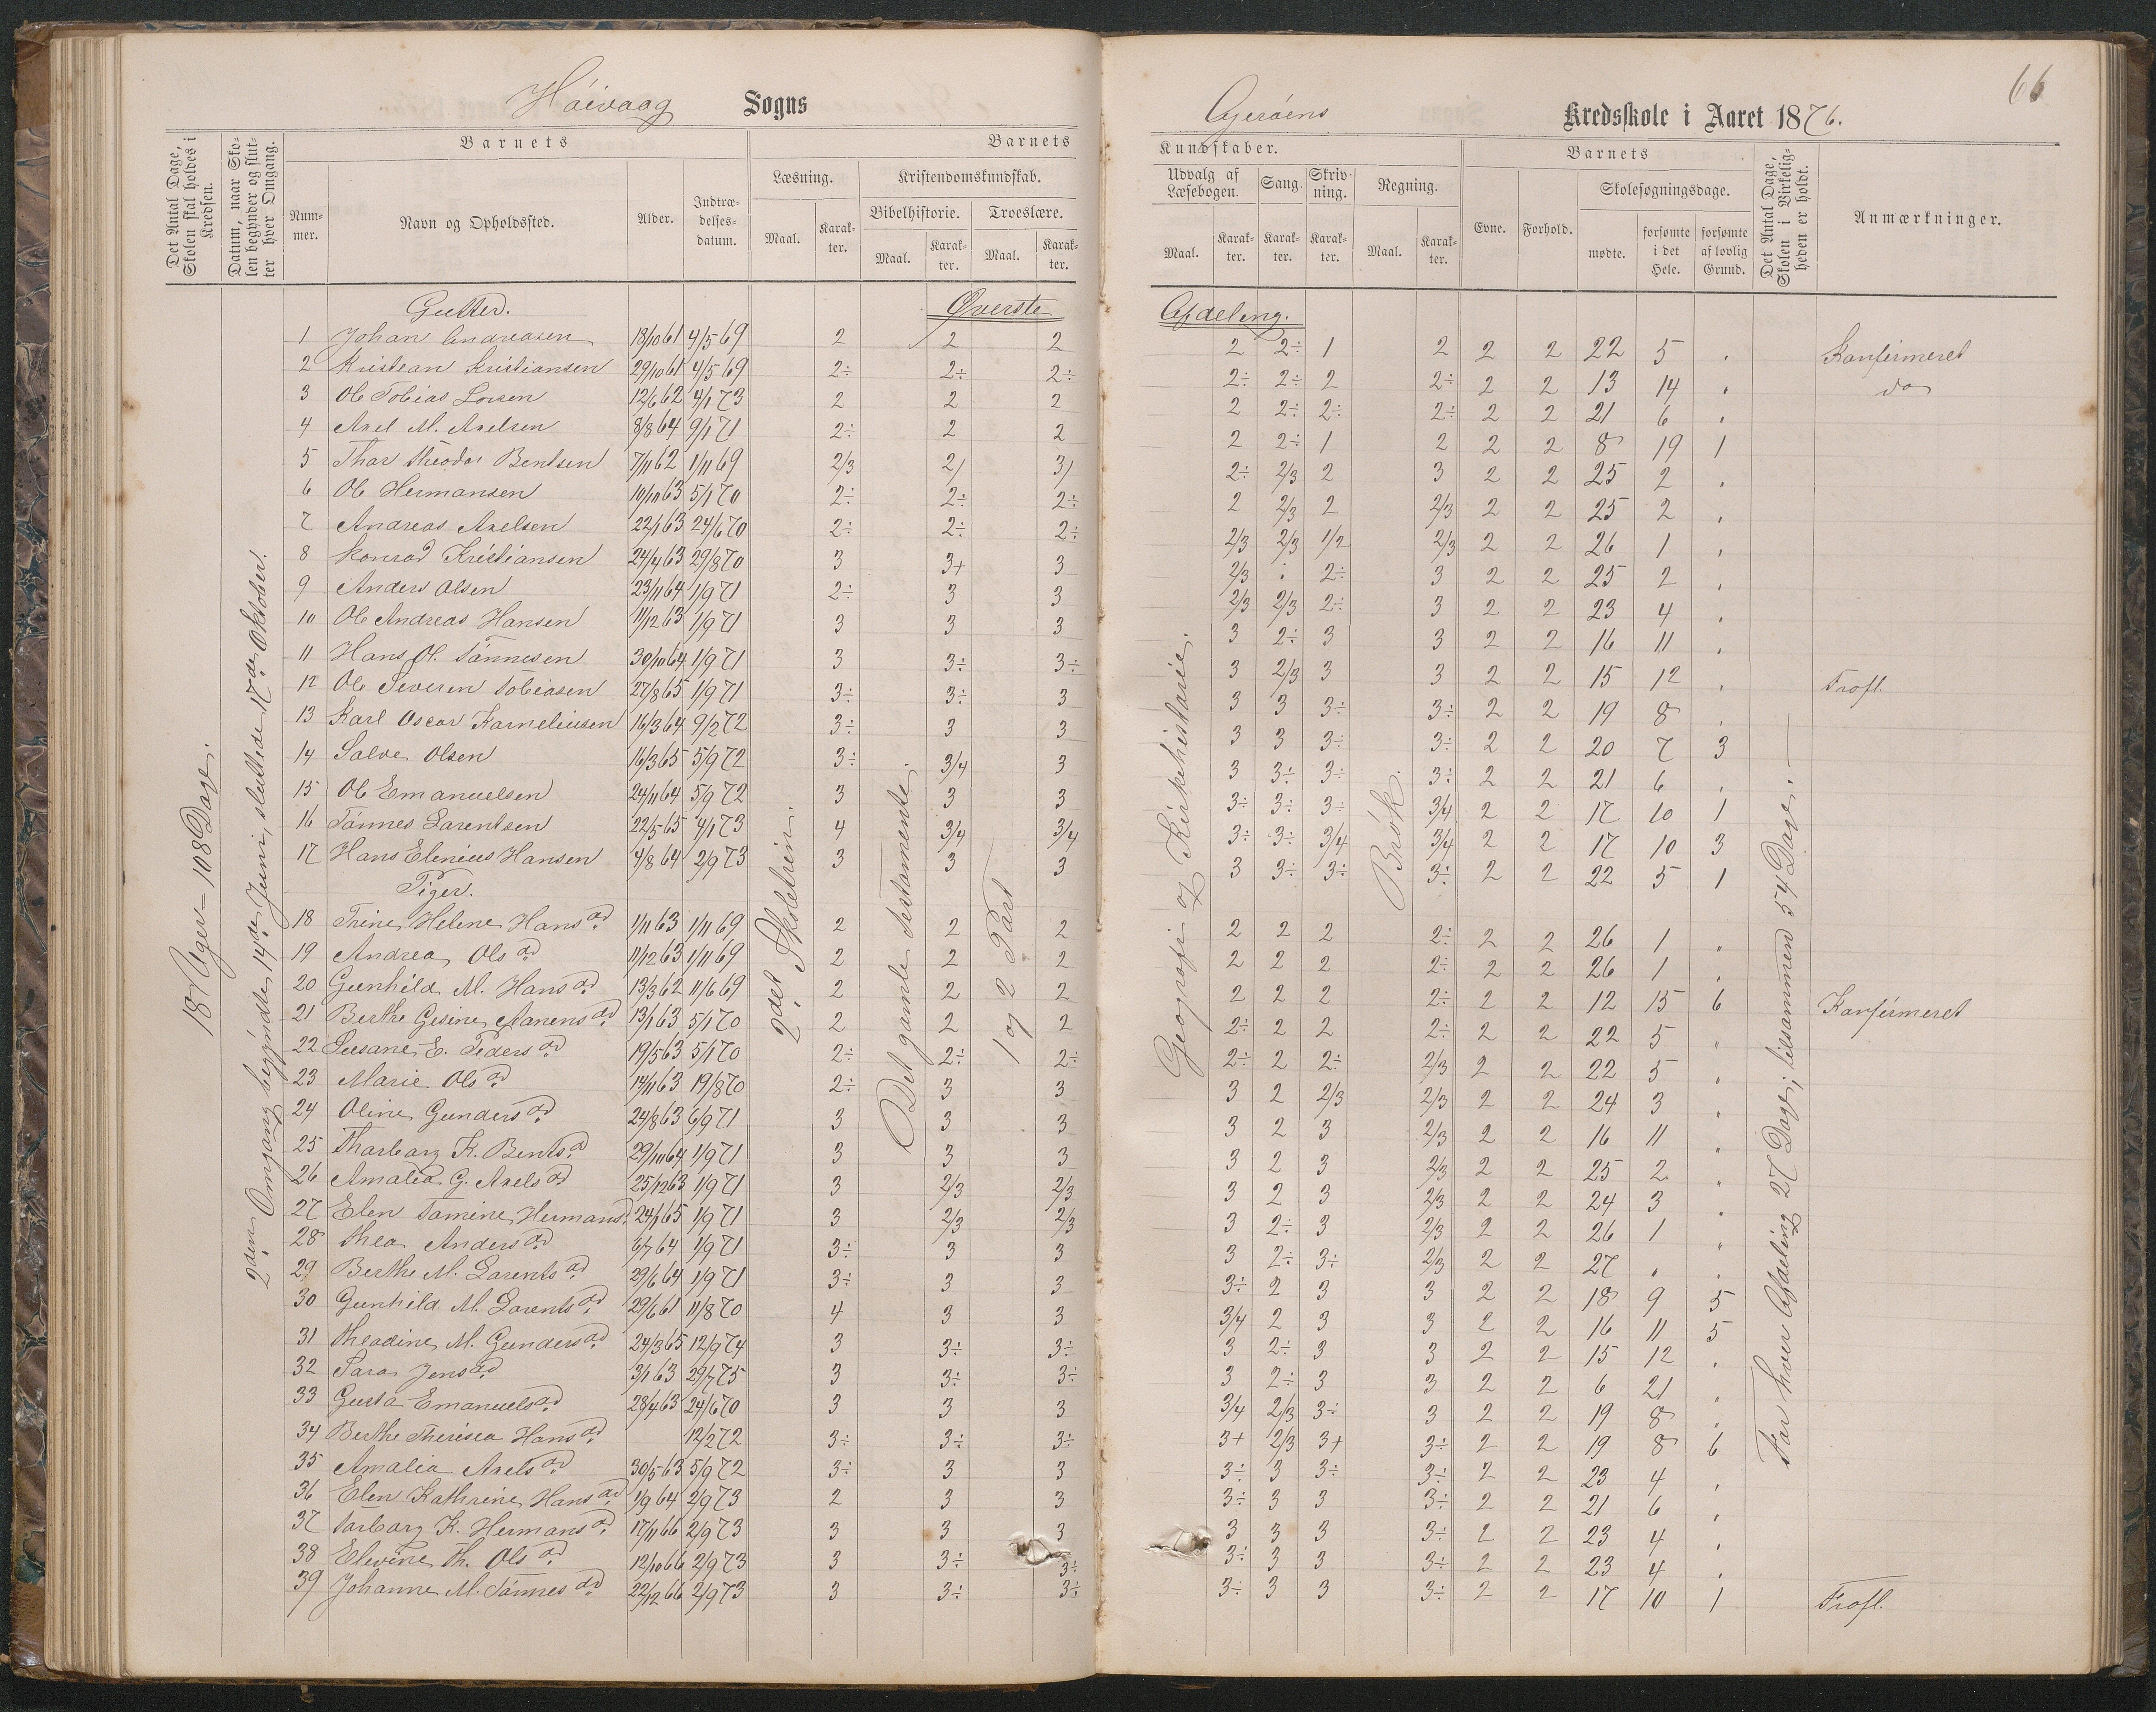 66
Höivaag Sogns Gjeröens Kredsskole i Aaret 1876.
Det Antal Dage, Skolen skal holdes i Kredsen.
Datum, naar Skolen begynder og slutter hver Omgang.
Barnets
Nummer.
Navn og Opholdssted.
Alder.
Indtrædelsesdatum.
Barnets Kundskaber.
Læsning.
Maal.
Karakter.
Kristendomskundskab.
Bibelhistorie.
Maal.
Karakter.
Troeslære.
Maal.
Karakter.
Udvalg af Læsebogen.
Maal.
Karakter.
Sang.
Karakter.
Skrivning.
Karakter.
Regning.
Maal.
Karakter.
Barnets
Evne.
Forhold.
Skolesøgningsdage.
mødte.
forsømte i det Hele.
forsømte af lovlig Grund.
Det Antal Dage, Skolen i Virkeligheden er holdt.
Anmærkninger.
18 Uger = 108 Dage.
2den Omgang begyndte 14de Juni, sluttede 17de Oktober.
2det Skoletrin.
Det gamle Testamente.
1 og 2 Part
Geografi og Kirkehistorie.
Brøk.
For hver Afdeling 27 Dage; tilsammen 54 Dage.
Gutter. Øverste Afdeling.
1 Johan Andreasen 18/10 61 4/5 69 2 2 2 2 2÷ 1 2 2 2 22 5 . Konfirmeret
2 Kristean Kristiansen 29/10 61 4/5 69 2÷ 2÷ 2÷ 2÷ 2÷ 2 2÷ 2 2 13 14 . do
3 Ole Tobias Larsen 12/6 62 4/1 73 2 2 2 2 2÷ 2÷ 2÷ 2 2 21 6 .
4 Axel M. Axelsen 8/8 64 9/1 71 2÷ 2 2 2 2÷ 1 2 2 2 8 19 1
5 Thor Theodor Bentsen 7/11 62 1/11 69 2/3 2/ 3/ 2÷ 2/3 2 3 2 2 25 2 .
6 Ole Hermansen 10/10 63 5/1 70 2÷ 2÷ 2÷ 2 2/3 2 2/3 2 2 25 2 .
7 Andreas Axelsen 22/1 63 24/6 70 2÷ 2÷ 2÷ 2/3 2/3 1/2 2/3 2 2 26 1 .
8 Konrad Kristiansen 24/4 63 29/8 70 3 3+ 3 2/3 : 2÷ 3 2 2 25 2 .
9 Anders Olsen 23/11 64 1/9 71 2÷ 3 3 2/3 2/3 2÷ 3 2 2 23 4 .
10 Ole Andreas Hansen 11/12 63 1/9 71 3 3 3 3 2÷ 3 3 2 2 16 11 .
11 Hans Ol. Tönnesen 30/10 64 1/9 71 3 3÷ 3÷ 3 2/3 3 3 2 2 15 12 . Frafl.
12 Ole Severin Tobiasen 27/8 65 1/9 71 3÷ 3÷ 3 3 3 3÷ 3÷ 2 2 19 8 .
13 Karl Oscar Karneliusen 16/3 64 9/2 72 3÷ 3 3 3 3 3÷ 3÷ 2 2 20 7 3
14 Salve Olsen 16/3 65 5/9 72 3÷ 3/4 3 3 3÷ 3÷ 3÷ 2 2 21 6 .
15 Ole Emanuelsen 24/11 64 5/9 72 3 3 3 3÷ 3÷ 3÷ 3/4 2 2 17 10 1
16 Tönnes Larentsen 22/5 65 4/1 73 4 3/4 3/4 3÷ 3÷ 3/4 3/4 2 2 17 10 3
17 Hans Elenius Hansen 4/8 64 2/9 73 3 3 3 3 3÷ 3÷ 3÷ 2 2 22 5 1
Piger.
18 Trine Helene Hansd. 1/11 63 1/11 69 2 2 2 2 2 2 2÷ 2 2 26 1 "
19 Andrea Olsd 11/12 63 1/11 69 2 2 2 2 2 2 2÷ 2 2 26 1 .
20 Gunhild M. Hansd. 13/3 62 11/6 69 2 2 2 2 2 2 2÷ 2 2 12 15 6 Konfirmeret
21 Berthe Gesine Aanensd. 13/1 63 5/1 70 2 2 2 2÷ 2 2 2÷ 2 2 22 5 "
22 Susane E. Pedersd 19/5 63 5/1 70 2÷ 2÷ 2÷ 2÷ 2 2÷ 2/3 2 2 22 5 "
23 Marie Olsd 14/11 63 19/8 70 2÷ 3 3 3 2 2/3 2/3 2 2 24 3 .
24 Oline Gundersd. 24/8 63 6/9 71 3 3 3 3 2 3 2/3 2 2 16 11 "
25 Tharbarg K. Bentsd 29/10 64 1/9 71 3 3 3 3 2 3 2/3 2 2 25 2 "
26 Amalia G. Axelsd 25/12 63 1/9 71 3 2/3 2/3 3 2 3 2/3 2 2 24 3 .
27 Elen Tomine Hermansd. 24/1 65 1/9 71 3 2/3 2/3 3 2÷ 3 2/3 2 2 26 1 "
28 Thea Andersd. 6/7 64 1/9 71 3÷ 3 3 3 2÷ 3÷ 2/3 2 2 27 . .
29 Berthe M. Larentsd 29/6 64 1/9 71 3÷ 3 3 3÷ 2 3 3 2 2 18 9 5
30 Gunhild M. Larentsd 29/6 61 11/8 70 4 3 3 3/4 2 3 3 2 2 16 11 5
31 Theodine M. Gundersd. 24/3 65 12/9 74 3 3÷ 3÷ 3 2÷ 3 3 2 2 15 12 .
32 Sara Jensd. 3/1 63 29/7 75 3 3÷ 3÷ 3 2÷ 3 3 2 2 6 21 "
33 Gusta Emanuelsd 28/4 63 24/6 70 3 3 3 3/4 2/3 3÷ 3 2 2 19 8 .
34 Berthe Theresea Hansd. 12/2 72 3÷ 3÷ 3÷ 3+ 2/3 3+ 3÷ 2 2 19 8 6
35 Amalia Axelsd 30/5 63 5/9 72 3÷ 3 3 3÷ 3 3÷ 3÷ 2 2 23 4 .
36 Elen Kathrine Hansd 1/9 64 2/9 73 2 3 3 3÷ 3 3 3÷ 2 2 21 6 .
37 Tarbarg K. Hermansd. 17/11 66 2/9 73 3 3 3 3 3 3 3÷ 2 2 23 4 .
38 Elevine Th. Olsd 12/10 66 2/9 73 3 3÷ 3÷ 3÷ 3 3 3÷ 2 2 23 4 .
39 Johanne M. Tönnesd 22/12 66 2/9 73 3 3÷ 3÷ 3÷ 3 3 3÷ 2 2 17 10 1 Frafl.